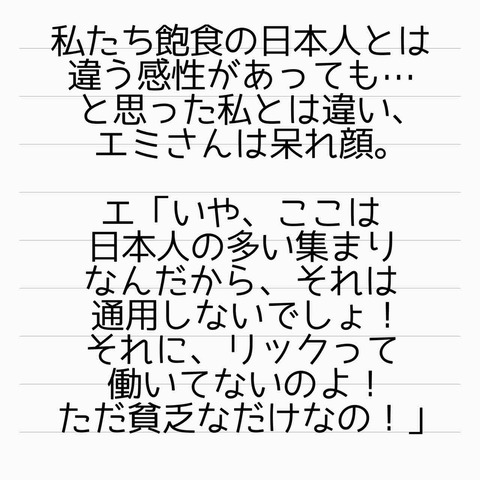 私たち飽食の日本人とは
違う感性があっても…
と思った私とは違い、
エミさんは呆れ顔。
エ「いや、ここは
日本人の多い集まり
なんだから、それは
通用しないでしょ！
それに、リックって
働いてないのよ！
ただ貧乏なだけなの！」